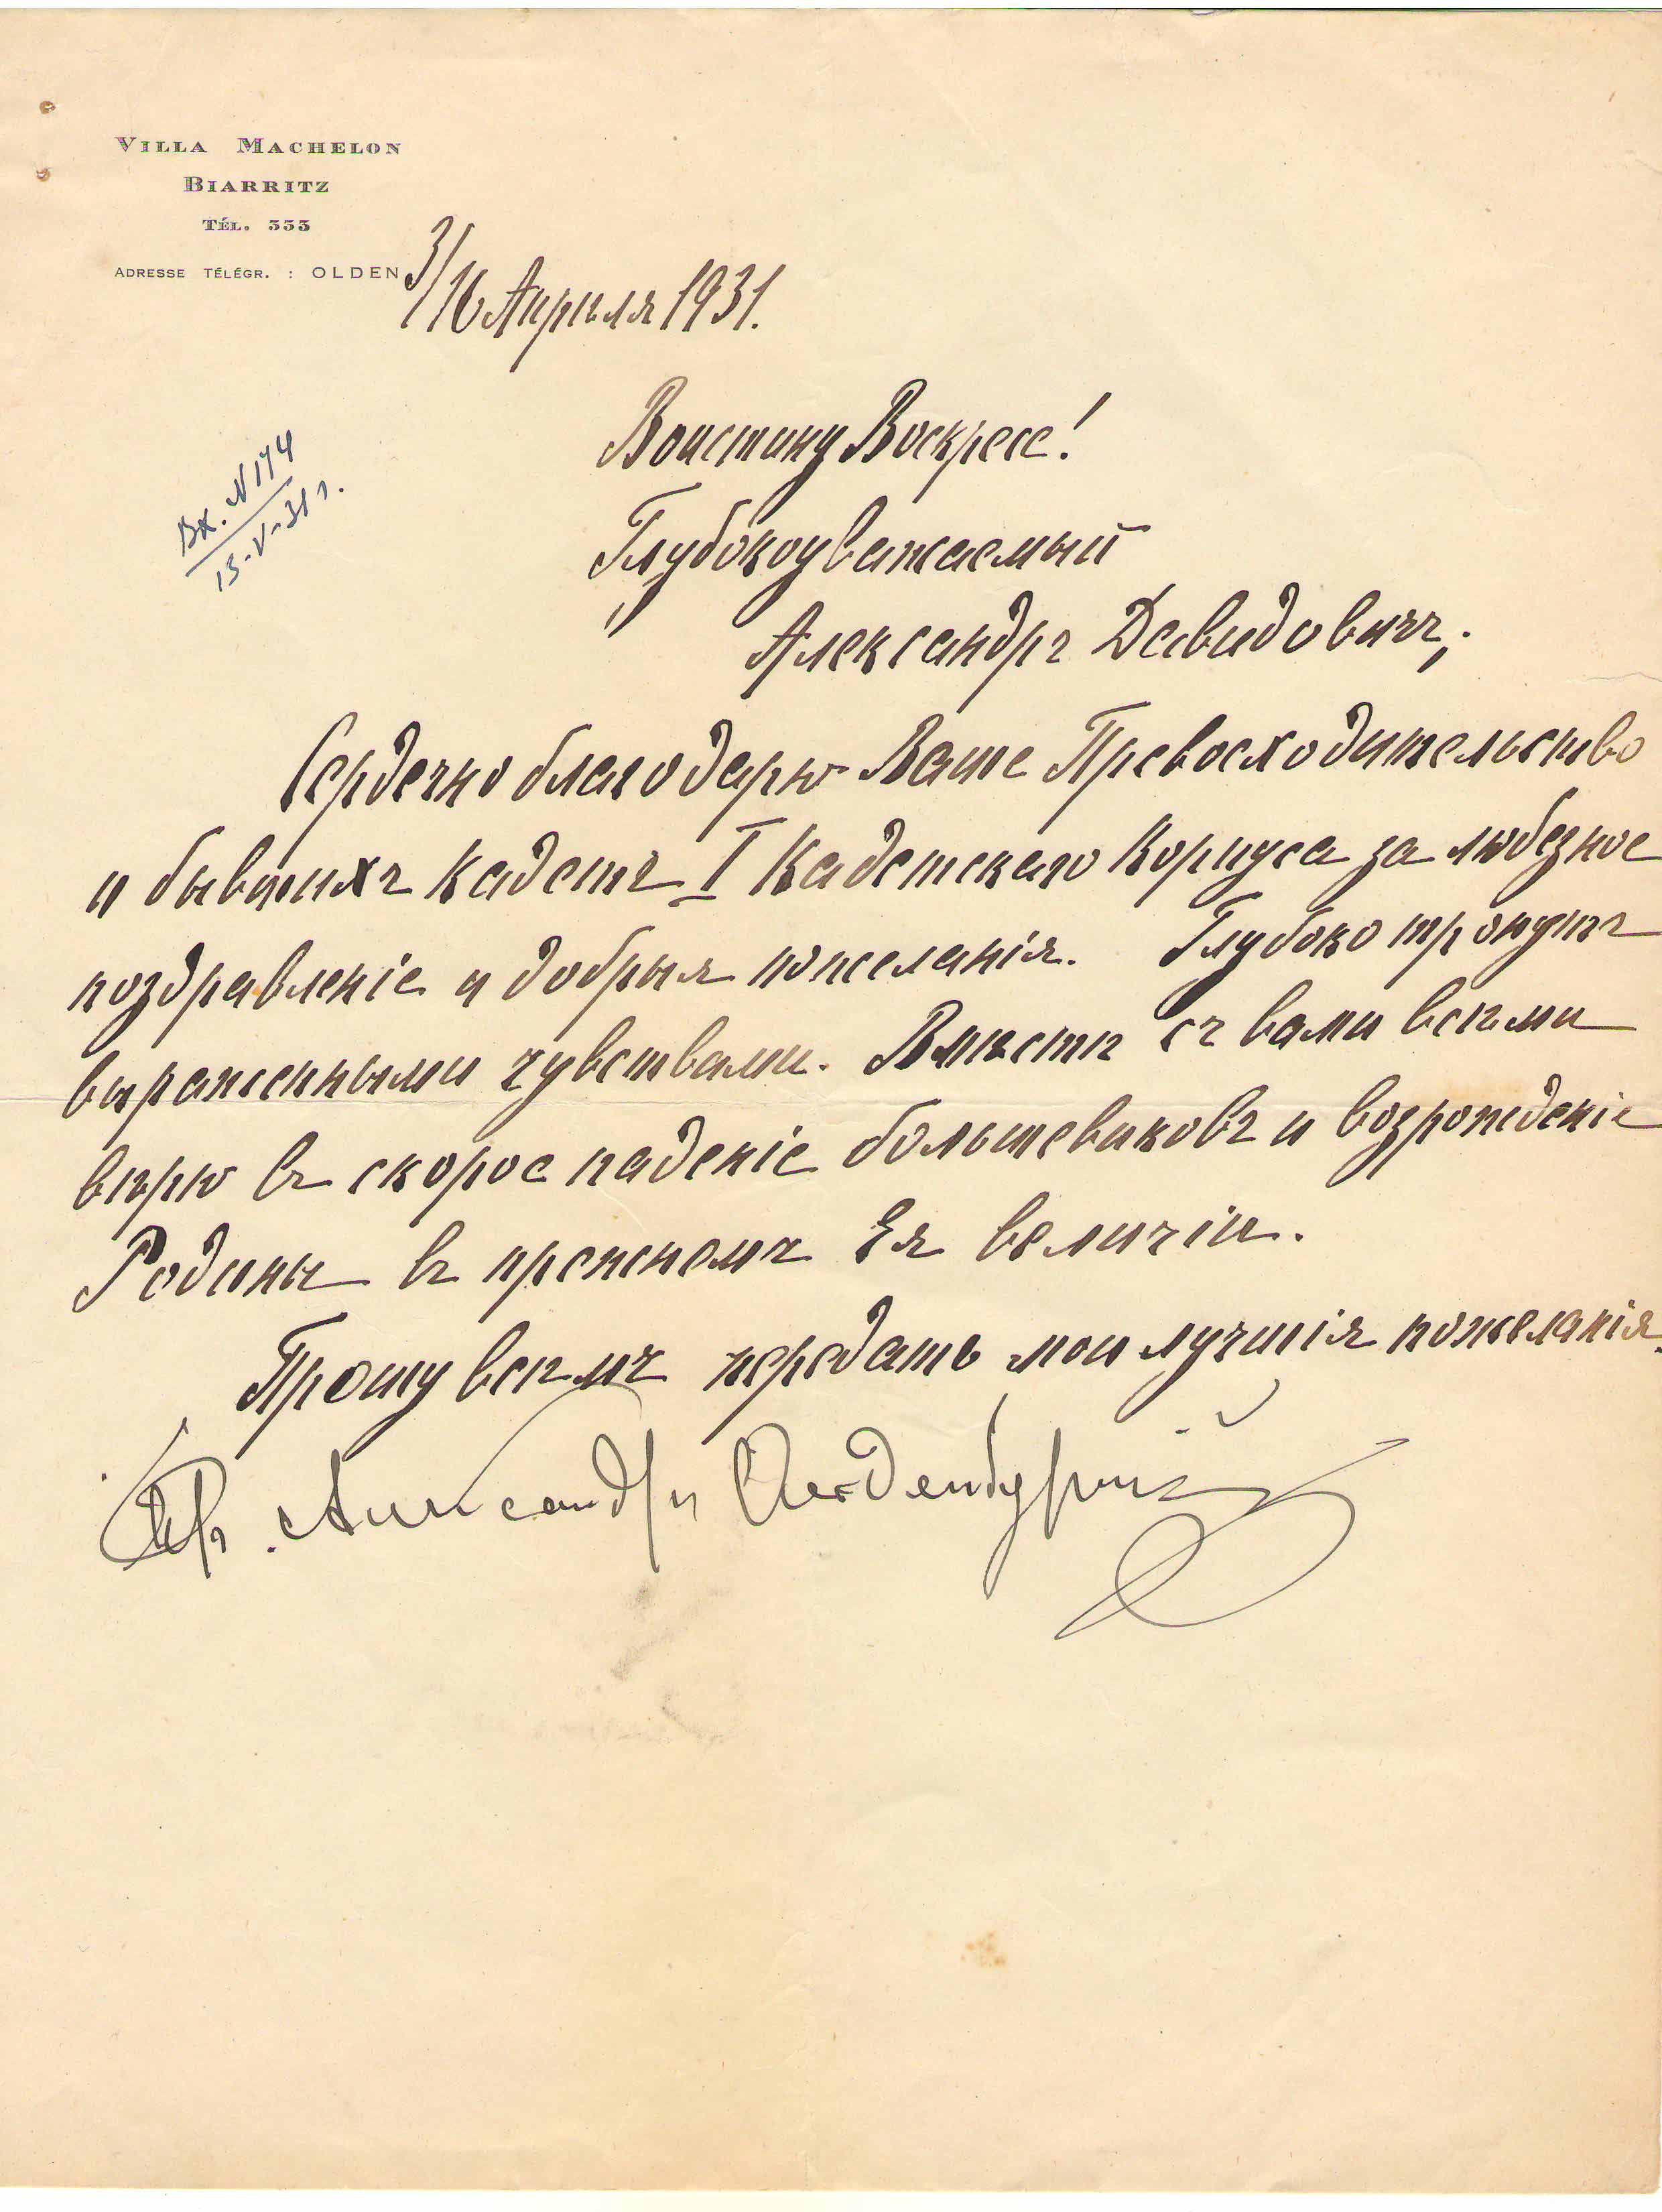 VILLA MACHELON
BIARRITZ
TÉL. 333
ADRESSE TÉLÉGR. : OLDEN
3/16 Апрѣля 1931.
Вх. N 174
13-V-31 г.
Воистину Воскресе!
Глубокоуважаемый
Александръ Давидовичъ,
Сердечно благодарю Ваше Превосходительство
и бывшихъ Кадетъ I Кадетскаго Корпуса за любезное
поздравленіе и добрыя пожеланія. Глубоко тронутъ
выраженными чувствами. Вмѣстѣ съ вами всѣми
вѣрю въ скорое паденіе большевиковъ и возрожденіе
Родины въ прежнемъ Ея величіи.
Прошу всѣмъ передать мои лучшія пожеланія.
Пр. Александръ Ольденбургскій